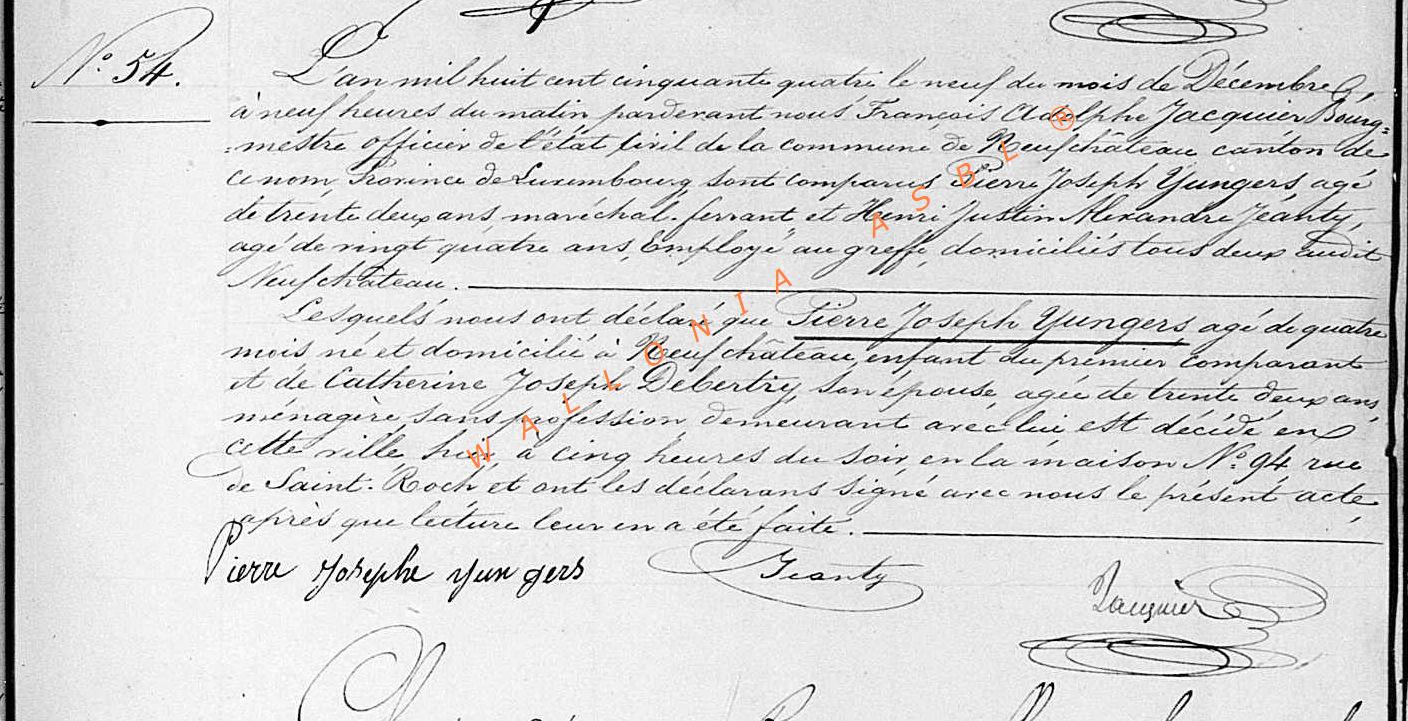 N.° 54.
L'an mil huit cent cinquante quatre le neuf du mois de Décembre,
à neuf heures du matin pardevant nous François Adolphe Jacquier Bourg=
=mestre officier de l'état civil de la commune de Neufchâteau canton de
ce nom, Province de Luxembourg sont comparus Pierre Joseph Yungers agé
de trente deux ans maréchal-ferrant et Henri Justin Alexandre Jéanty,
agé de vingt quatre ans, Employé au greffe, domiciliés tous deux audit
Neufchâteau.
Lesquels nous ont déclaré que Pierre Joseph Yungers agé de quatre
mois né et domicilié à Neufchâteau, enfant du premier comparant
et de Catherine Joseph Debertry, son épouse, agée de trente deux ans,
ménagère, sans profession demeurant avec lui est décédé en
cette ville, hier à cinq heures du soir, en la maison N.° 94 rue
de Saint-Roch, et ont les déclarans signé avec nous le présent acte,
après que lecture leur en a été faite.
Pierre Josephe Yungers Jeanty Jacquier
WALLONIA ASBL ®